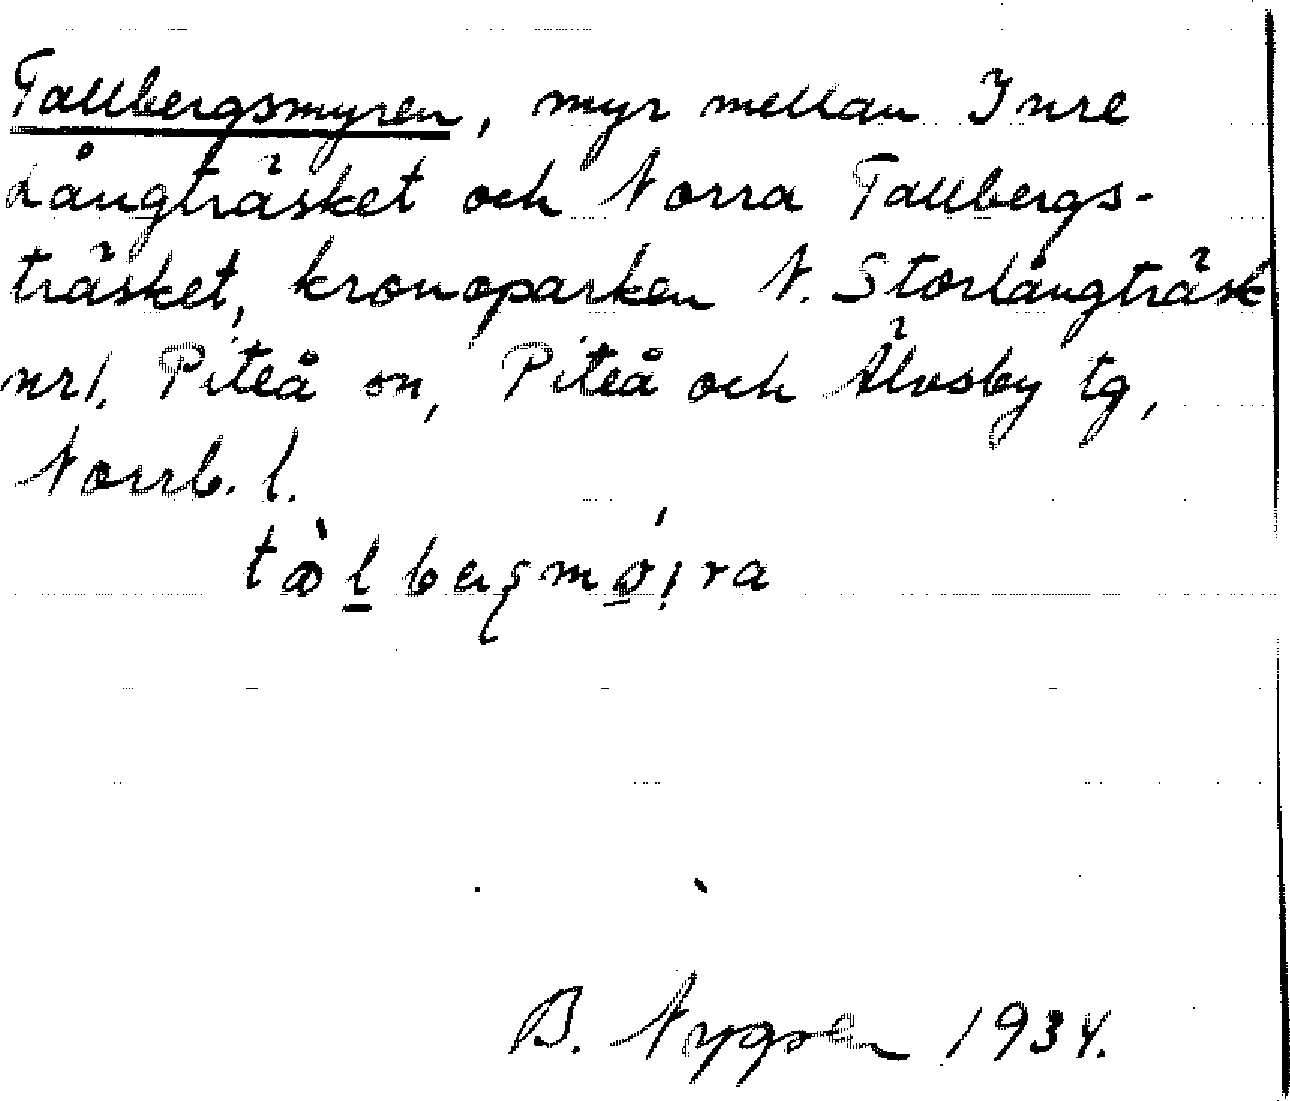 Tallbergsmyren, myr mellan Inre
Långträsket och Norra Tallbergs-
träsket, kronoparken N. Storlångträsk
nr 1. Piteå sn, Piteå och Älvsby tg,
Norrb. l.
B. Nygren 1934.